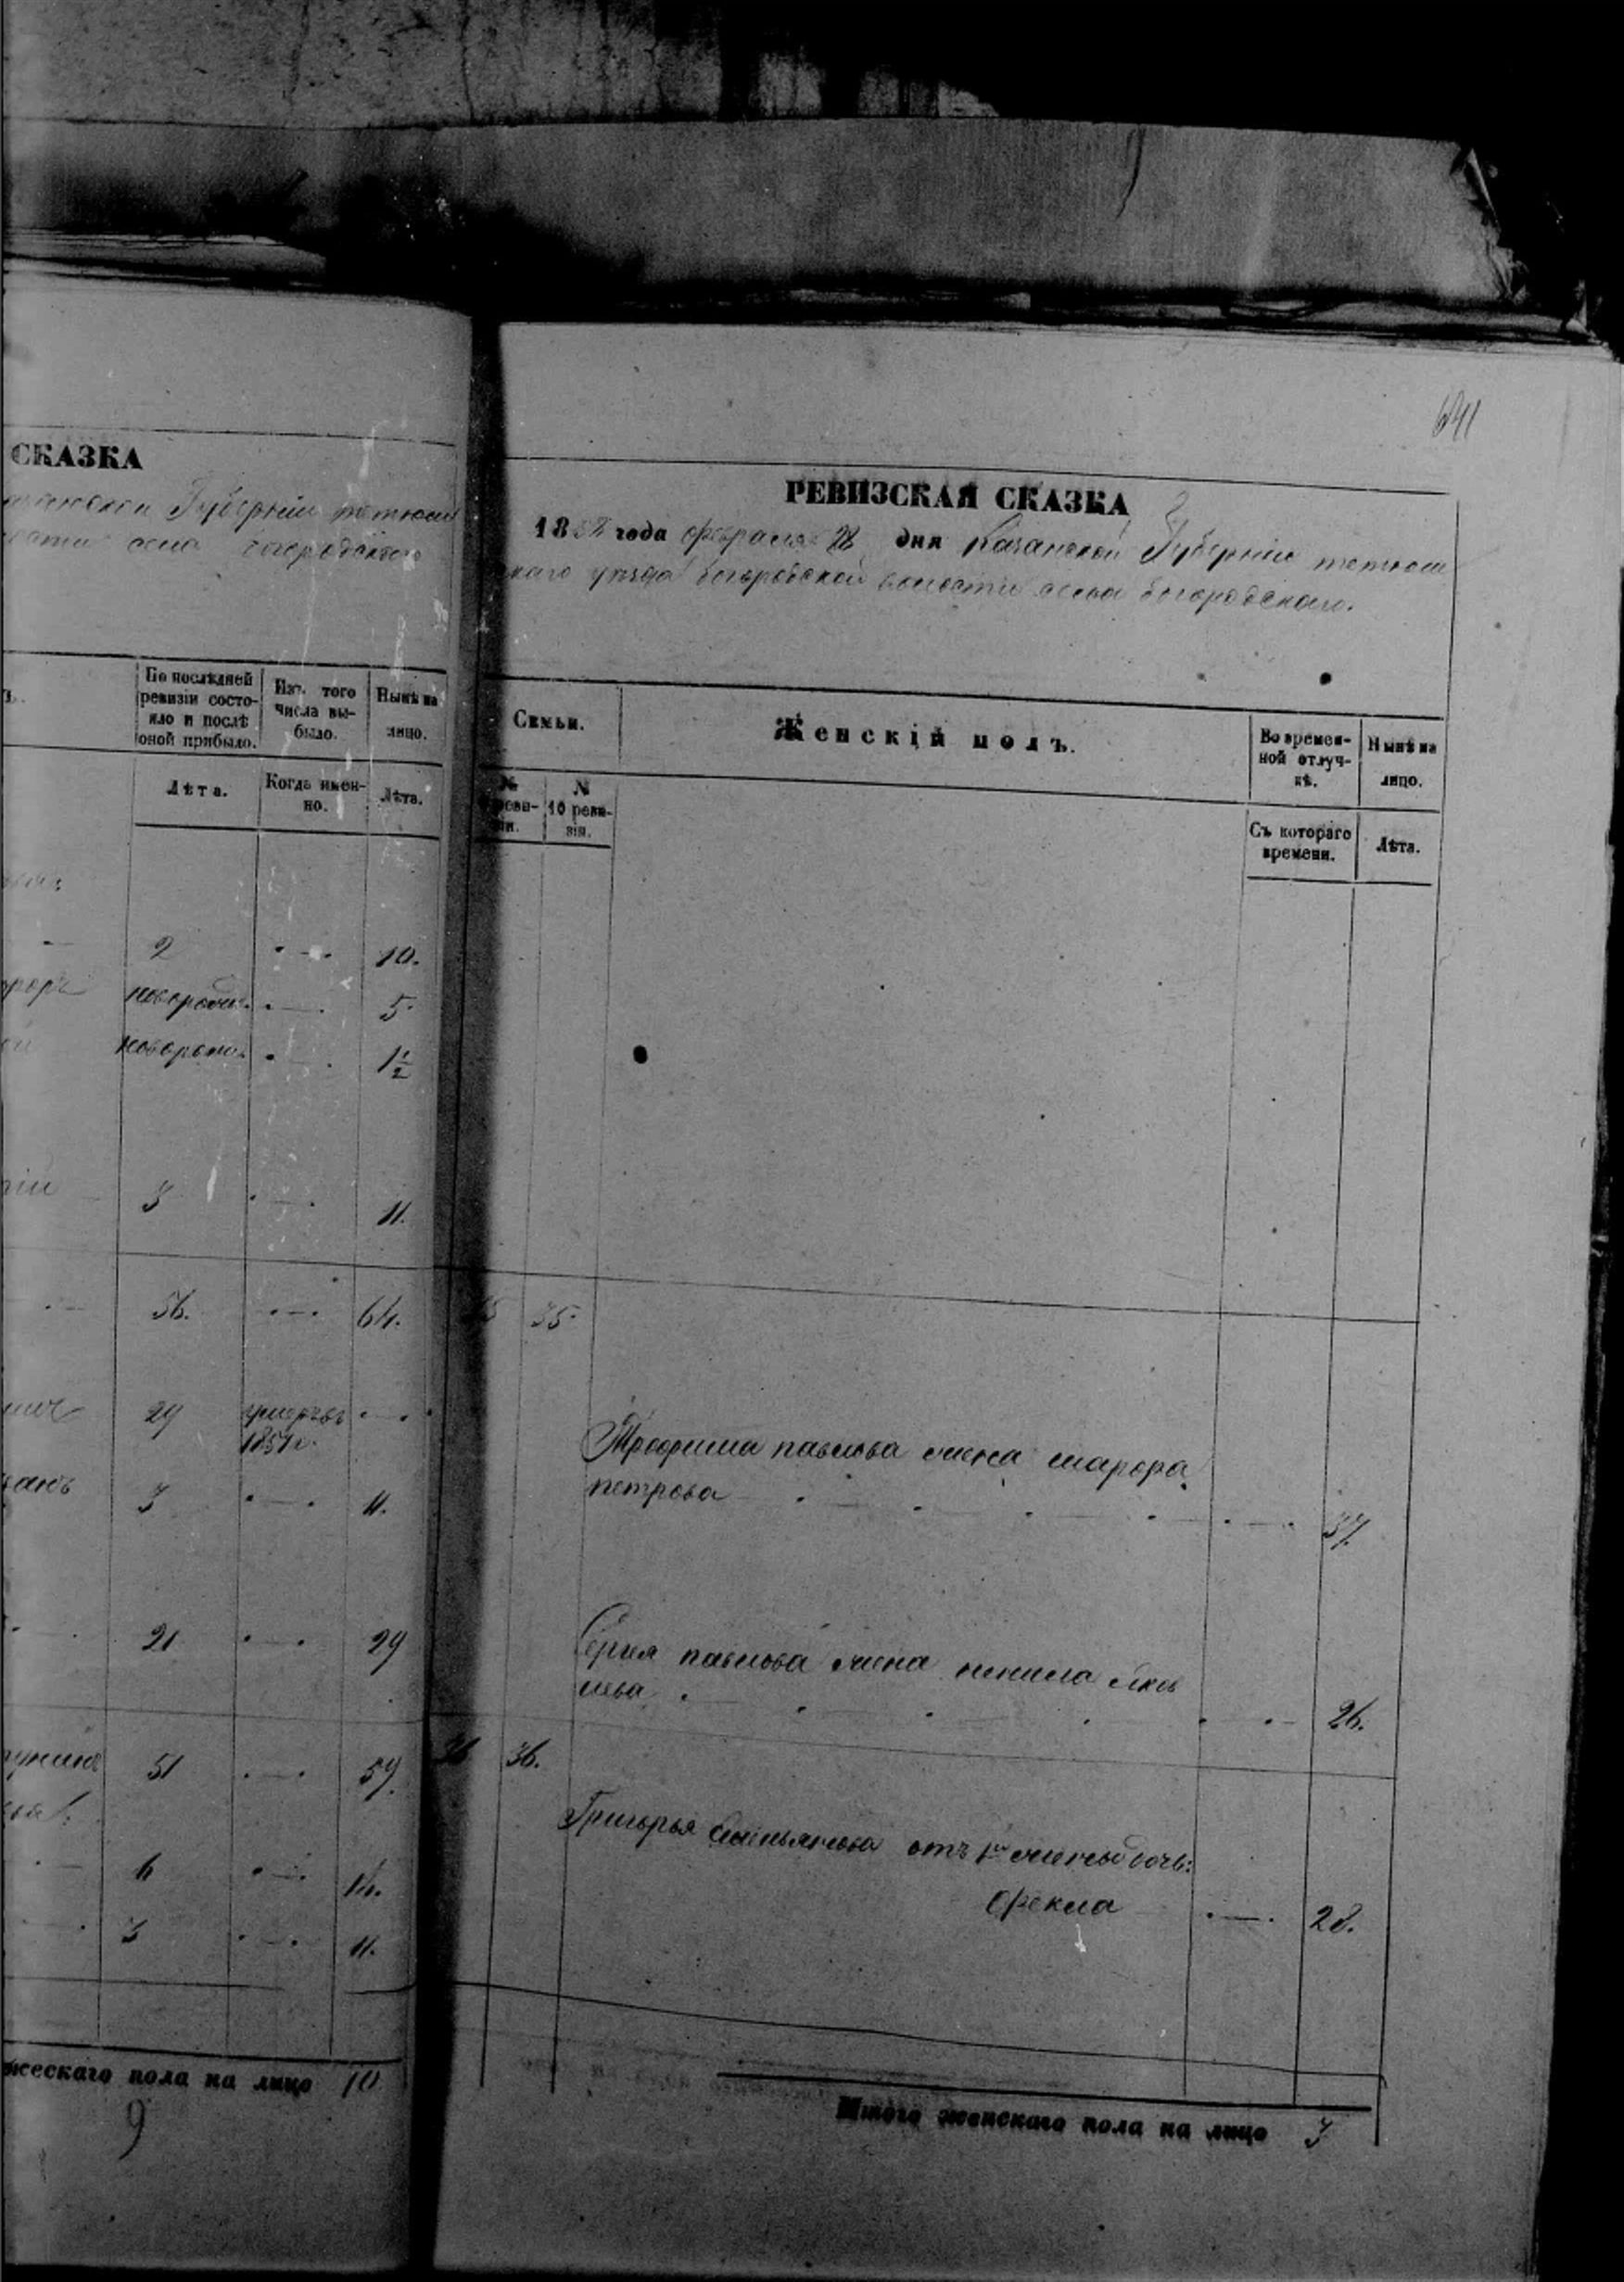 СКАЗКА
Губерніи тетюш
села богородского
По послѣдней ревизіи состояло и послѣ оной прибыло.
Изъ того числа выбыло.
Нынѣ на лицо.
Лѣта.
Когда именно.
Лѣта.
2 10.
новорожд. 5
новорожд. 1 1/2
3 11.
56. 64.
29 умеръ въ
1851 г.
3 11.
21 29
51 59.
6 14.
3 11.
жескаго пола на лицо 10
9
641
РЕВИЗСКАЯ СКАЗКА
1858 года февраля 28 дня Казанской Губерніи тетюш
скаго уѣзда богородской волости села богородскаго.
Семьи.
Женскій полъ.
Во временной отлучкѣ.
Нынѣ на лицо.
№ реви-зіи.
№ 10 реви-зіи.
Съ котораго времени.
Лѣта.
35 35.
Трофима павлова жена марфа
петрова 37.
Сергея павлова жена ненила яков
лева 26.
36 36.
Григорья емельянова отъ 1й жены дочь:
фекла 28.
Итого женскаго пола на лицо 3